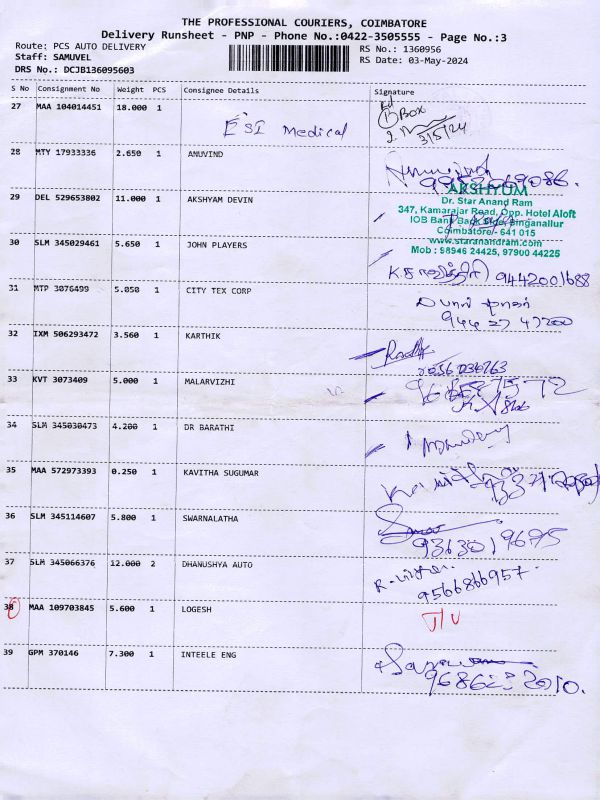 THE PROFESSIONAL COURIERS, COIMBATORE
Delivery Runsheet - PNP - Phone No.:0422-3505555 - Page No.:3
Route: PCS AUTO DELIVERY
Staff: SAMUVEL
DRS No.: DCJB136095603
RS No.: 1360956
RS Date: 03-May-2024
S No Consignment No Weight PCS Consignee Details Signature
27 MAA 104014451 18.000 1 ESI Medical
BOX
3/5/24
28 MTY 17933336 2.650 1 ANUVIND
29 DEL 529653802 11.000 1 AKSHYAM DEVIN
AKSHYUM
Dr. Star Anand Ram
347, Kamarajar Road, Opp. Hotel Aloft
IOB Bank Back Side, Singanallur
Coimbatore - 641 015
www.staranandram.com
Mob : 98946 24425, 97900 44225
30 SLM 345029461 5.650 1 JOHN PLAYERS
9442001688
31 MTP 3076499 5.050 1 CITY TEX CORP
32 IXM 506293472 3.560 1 KARTHIK
33 KVT 3073409 5.000 1 MALARVIZHI
34 SLM 345030473 4.200 1 DR BARATHI
35 MAA 572973393 0.250 1 KAVITHA SUGUMAR
36 SLM 345114607 5.800 1 SWARNALATHA
9363019695
37 SLM 345066376 12.000 2 DHANUSHYA AUTO
9566866957
38 MAA 109703845 5.600 1 LOGESH
39 GPM 370146 7.300 1 INTEELE ENG